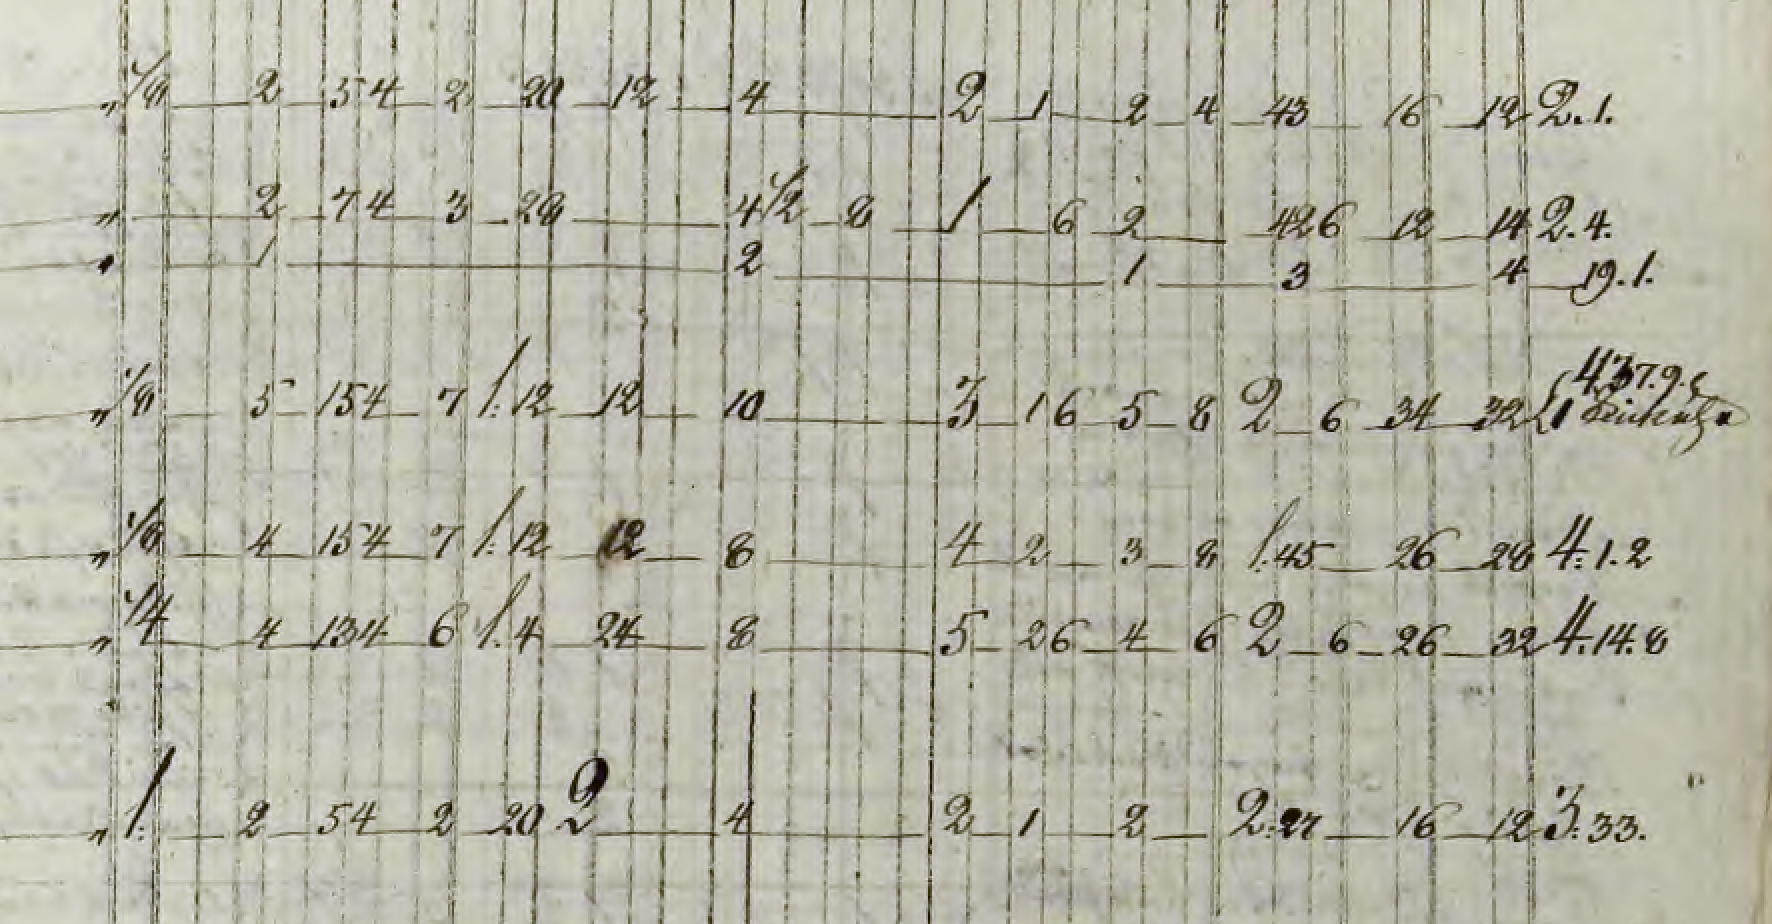 " 1/8 2 54 2 20 12 4 2 1 2 4 43 16 12 2.1.
" 2 74 3 28 4 1/2 8 1 6 2 426 12 14 2.4.
" 1 2 1 3 4 19.1.
" 1/8 5 154 7 1.12 12 10 3 16 5 8 2 6 34 32 21 437.9.
" 1/8 4 154 7 1.12 12 8 4 2 3 8 1.45 26 28 4.1.2
" 1/4 4 134 6 1.4 24 8 5 26 4 6 2 6 26 32 4.14.8
" 1. 2 54 2 20 2 4 2 1 2 2.27 16 12 3.33.